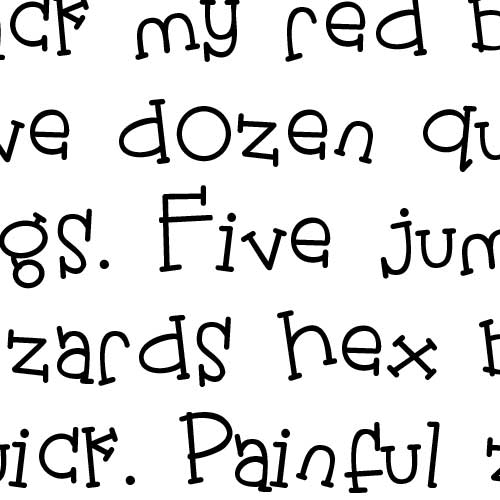 ick my red b
ve dozen qu
gs. Five jum
zards hex b
uick. Painful z